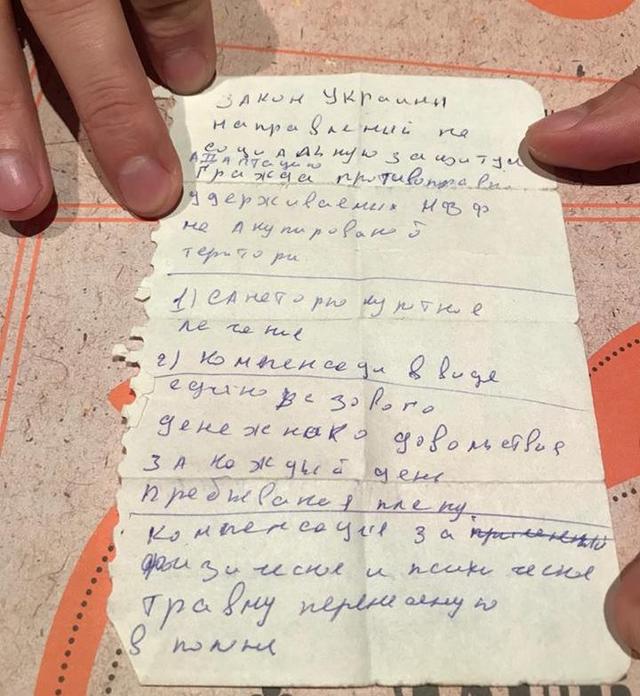 ЗАКОН УКРАИНЫ
направленый на
социАльную защиту
АДАПТАЦИЮ
Гражда противоправно
удерживаемых НВФ
не Акупированой
територи
1) САнеторно курптное
ле чение
2) Компенсаци в виде
едино ра зового
денежнако довольствия
ЗА каждый день
пребывания плену
компенсацие за
физическое и психическое
травму перенесеную
в полне